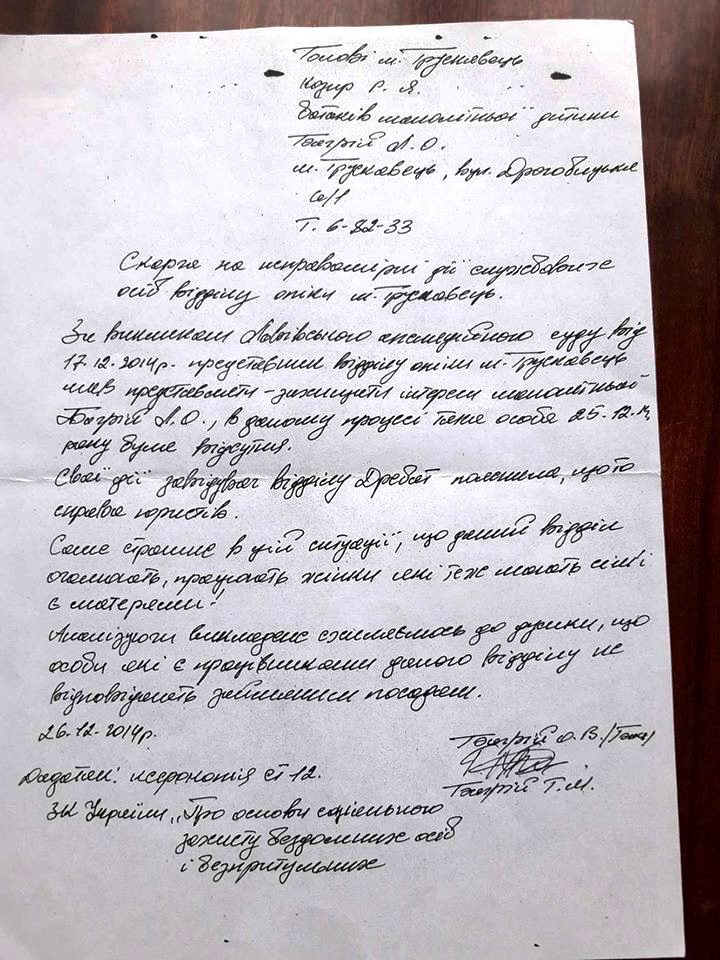 Голові м. Трускавець
Козир Р. Я.
батьків малолітньої дитини
Багрій А. О.
м. Трускавець, вул. Дрогобицька
Т. 6-82-33
Скарга на неправомірні дії службових
осіб відділу опіки м. Трускавець.
За викликом Львівського апеляційного суду від
17.12.2014р. представник відділу опіки м. Трускавець
мав представляти-захищати інтереси малолітньої
Багрій А. О., в даному процесі така особа 25.12.14
року була відсутня.
Свої дії завідувач відділу Дребот пояснила, що то
справа юристів.
Саме страшне в цій ситуації, що даний відділ
очолюють, працюють жінки які теж мають сім'ї
є матерями!
Аналізуючи викладене схиляємось до думки, що
особи які є працівниками даного відділу не
відповідають займаним посадам.
26.12.2014р.
Багрій О. В.
Багрій Т. М.
Додаток: ксерокопія ст 12.
ЗК України „Про основи соціального
захисту бездомних осіб
і безпритульних